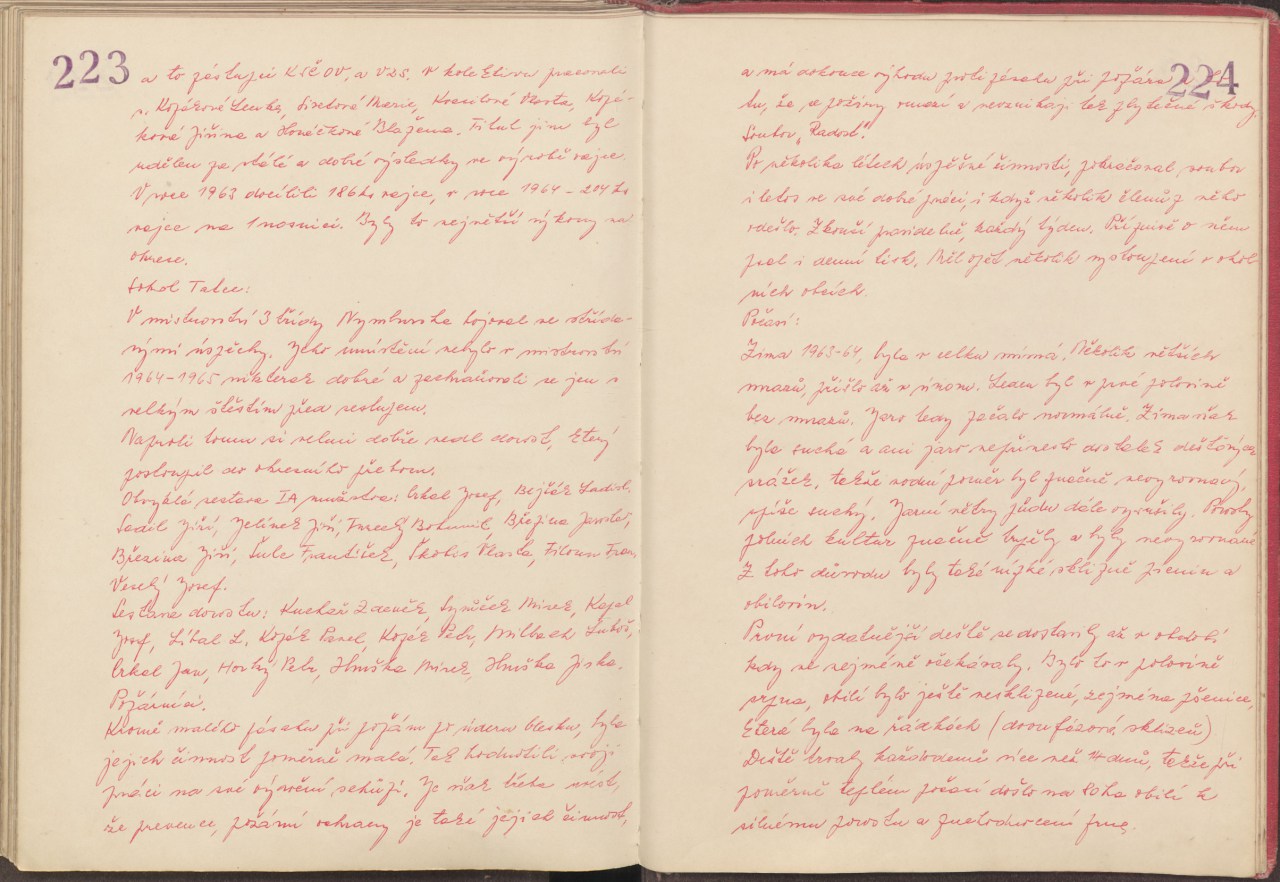 223
a to zástupci KSČ OV, a VZS. V kolektivu pracovali
s. Kozáková Lenka, Marie, Marta, Kozá-
ková Jiřina a Blažena. Titul jim byl
udělen za stálé a dobré výsledky ve výrobě vajec.
V roce 1963 docílili 186 ks vajec, v roce 1964 – 204 ks
vajec na 1 nosnici. Byly to největší výkony na
okrese.
Sokol Tatce:
V mistrovství 3 třídy Nymburska bojoval se střída-
vými úspěchy. Jeho umístění nebylo v mistrovství
1964–1965 nikterak dobré a zachraňovali se jen s
velkým štěstím před sestupem.
Naproti tomu si velmi dobře vedl dorost, který
postoupil do okresního přeboru.
Obvyklá sestava IA mužstva: Crkal Josef, Ladisl.
Sadil Jiří, Jelínek Jiří, Bohumil, Březina Jaroslav,
Březina Jiří, Šulc František, Vlasta, Filous Fran,
Veselý Josef.
Sestava dorostu: Kuchař Zdeněk, Mirek, Kopal
Josef, Líbal L. Kozák Pavel, Kozák Petr, Milbach Luboš,
Crkal Jan, Horký Petr, Hruška Mirek, Hruška Jiska.
Požárníci.
Kromě malého zásahu při požáru po úderu blesku, byla
jejich činnost poměrně malá. Tak hodnotili svoji
práci na své výroční schůzi. Je však třeba uvést,
že prevence, požární ochrany je také jejich činnost,
224
a má dokonce výhodu proti zásahu při požáru v
tu, že se požáry omezí a nevznikají tak zbytečné škody.
Soubor „Radost".
Po několika létech úspěšné činnosti, pokračoval soubor
i letos ve své dobré práci, i když několik členů z něho
odešlo. Zkouší pravidelně, každý týden. Příznivě o něm
psal i denní tisk. Měl opět několik vystoupení v okol
ních obcích.
Počasí:
Zima 1963–64, byla v celku mírná. Několik větších
mrazů, přišlo až v únoru. Leden byl v prvé polovině
bez mrazů. Jaro tedy začalo normálně. Zima však
byla suchá a ani jaro nepřineslo dostatek dešťových
srážek, takže vodní poměr byl značně nevyrovnaný,
spíše suchý. Jarní větry půdu dále vysušily. Porosty
polních kultur značně trpěly a byly nevyrovnané
Z toho důvodu byly také nízké sklizně pícnin a
obilovin.
První vydatnější deště se dostavily až v období
kdy se nejméně očekávaly. Bylo to v polovině
srpna, obilí bylo ještě nesklizené, zejména pšenice,
která byla na řádkách (dvoufázová sklizeň)
Deště trvaly každodenně více než 14 dnů, takže při
poměrně teplém počasí došlo na 80 ha obilí k
silnému porostu a znehodnocení zrna.